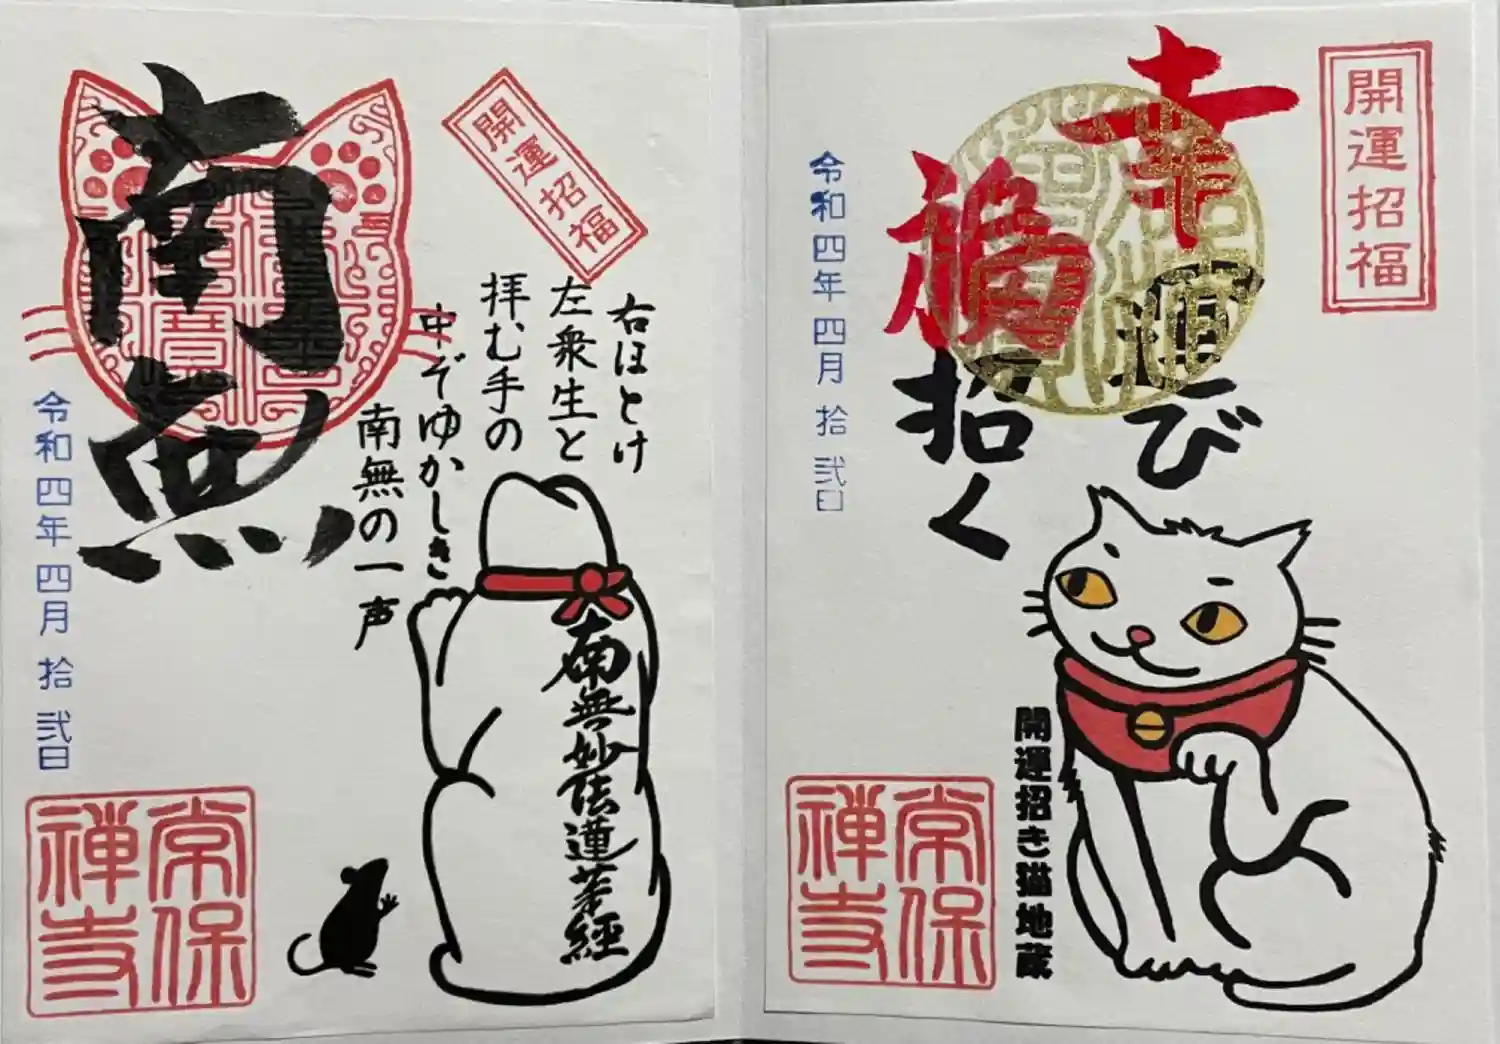 開運招福
幸運び
福招く
令和四年四月拾弐日
開運招き猫地蔵
常保
禅寺
開運招福
南無
右ほとけ
左衆生と
拝む手の
中ぞゆかしき
南無の一声
南無妙法蓮華経
令和四年四月拾弐日
常保
禅寺